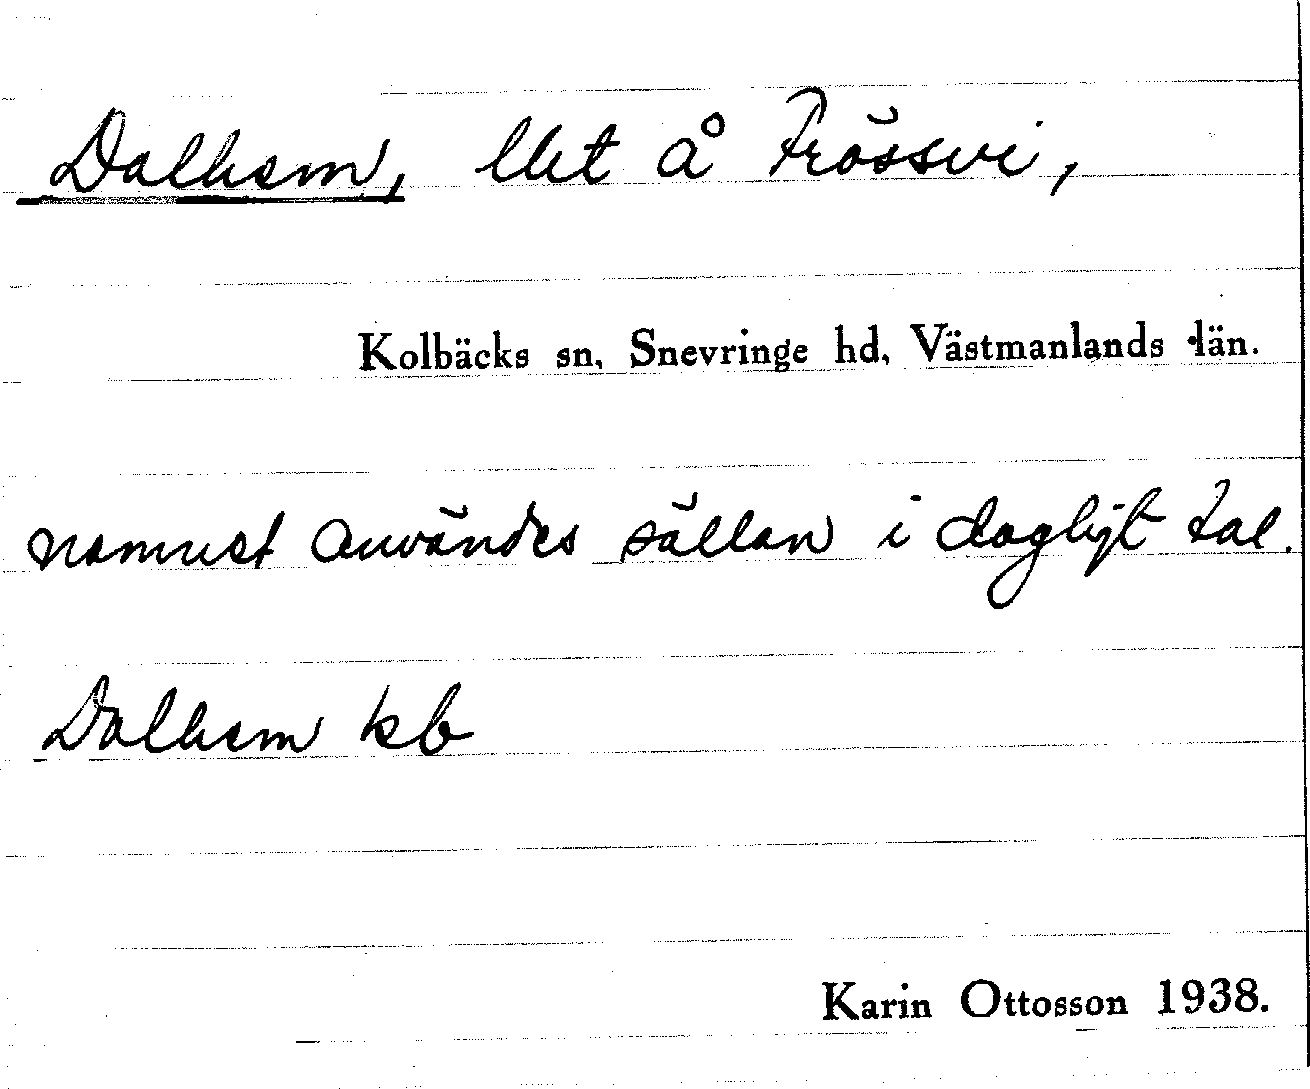 Dalhem, lht å Frössvi,
Kolbäcks sn, Snevringe hd, Västmanlands län.
namnet användes sällan i dagligt tal.
Dalhem kb
Karin Ottosson 1938.